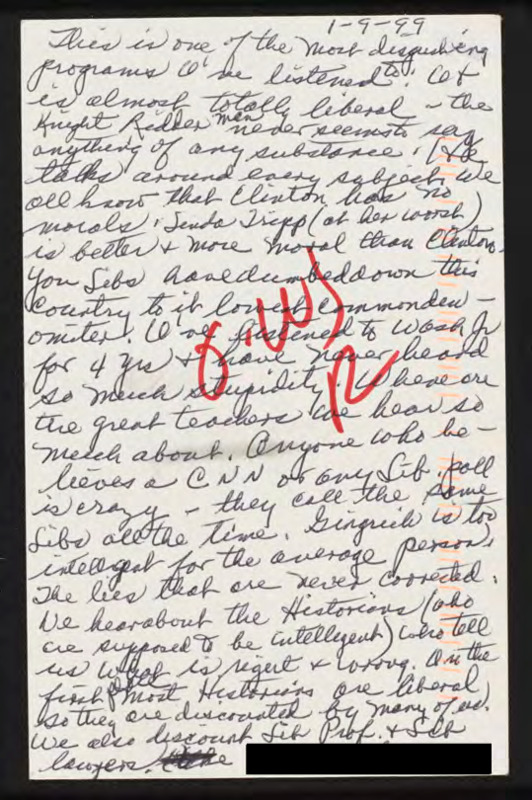 1-9-99
This is one of the most disgusting
programs I've listened to. It
is almost totally liberal - the
Knight Ridder man never seems to say
anything of any substance. He
talks around every subject. We
all know that Clinton has no
morals. Linda Tripp (at her worst)
is better & more moral than Clinton.
You Libs have dumbed down this
country to it lowest commonden-
omiter. I've listened to Wash Jr
for 4 yrs & have never heard
so much stupidity. Where are
the great teachers we hear so
much about. Anyone who be-
lieves a CNN or any Lib. poll
is crazy - they call the same
Libs all the time. Gingrich is too
intelligent for the average person.
The lies that are never corrected.
We hear about the Historians (who
are supposed to be intelligent) who tell
us what is right & wrong. In the
first place most Historians are liberal
so they are discounted by many of us.
We also discount Lib Prof. & Lib
lawyers.